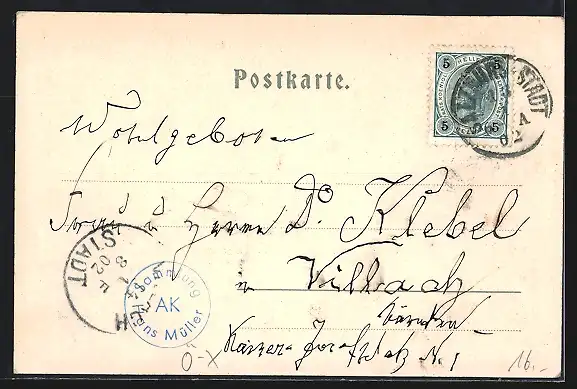 Postkarte.
5 HELLER 5
5 5
STADT
02
Wohlgeboren
Herrn Dr. Klebel
Villach
Kärnten
Kaiser Josefplatz N. 1
STADT
8 4 02
Sammlung
AK
Hans Müller
O-X
16.-